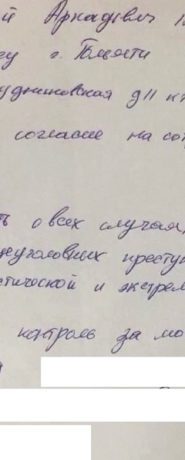 й Аркадьевич
г. Тольятти
удниковская д 11 к
согласие на со
ть о всех случаях
неуголовных престу
стической и экстрем
контроль за мо